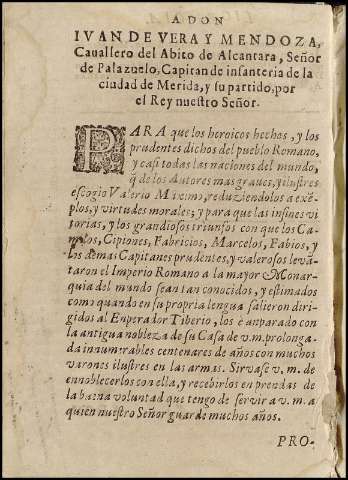 A DON
IVAN DE VERA Y MENDOZA,
Cauallero del Abito de Alcantara, Señor
de Palazuelo, Capitan de infanteria de la
ciudad de Merida, y su partido, por
el Rey nuestro Señor.
PARA que los heroicos hechos, y los
prudentes dichos del pueblo Romano,
y casi todas las naciones del mundo,
q̃ de los Autores mas graues, y ilustres
escogio Valerio Maximo, reduziendolos a exẽ-
plos, y virtudes morales; y para que las insines vi
torias, y los grandiosos triunfos con que los Ca-
milos, Cipiones, Fabricios, Marcelos, Fabios, y
los demas Capitanes prudentes, y valerosos leuã-
taron el Imperio Romano a la mayor Monar-
quia del mundo sean tan conocidos, y estimados
como quando en su propria lengua salieron diri-
gidos al Enperador Tiberio, los è anparado con
la antigua nobleza de su Casa de v.m. prolonga-
da innumerables centenares de años con muchos
varones ilustres en las armas. Siruase v. m. de
ennoblecerlos con ella, y recebirlos en prendas de
la buena voluntad que tengo de seruir a v. m. a
quien nuestro Señor guarde muchos años.
PRO-